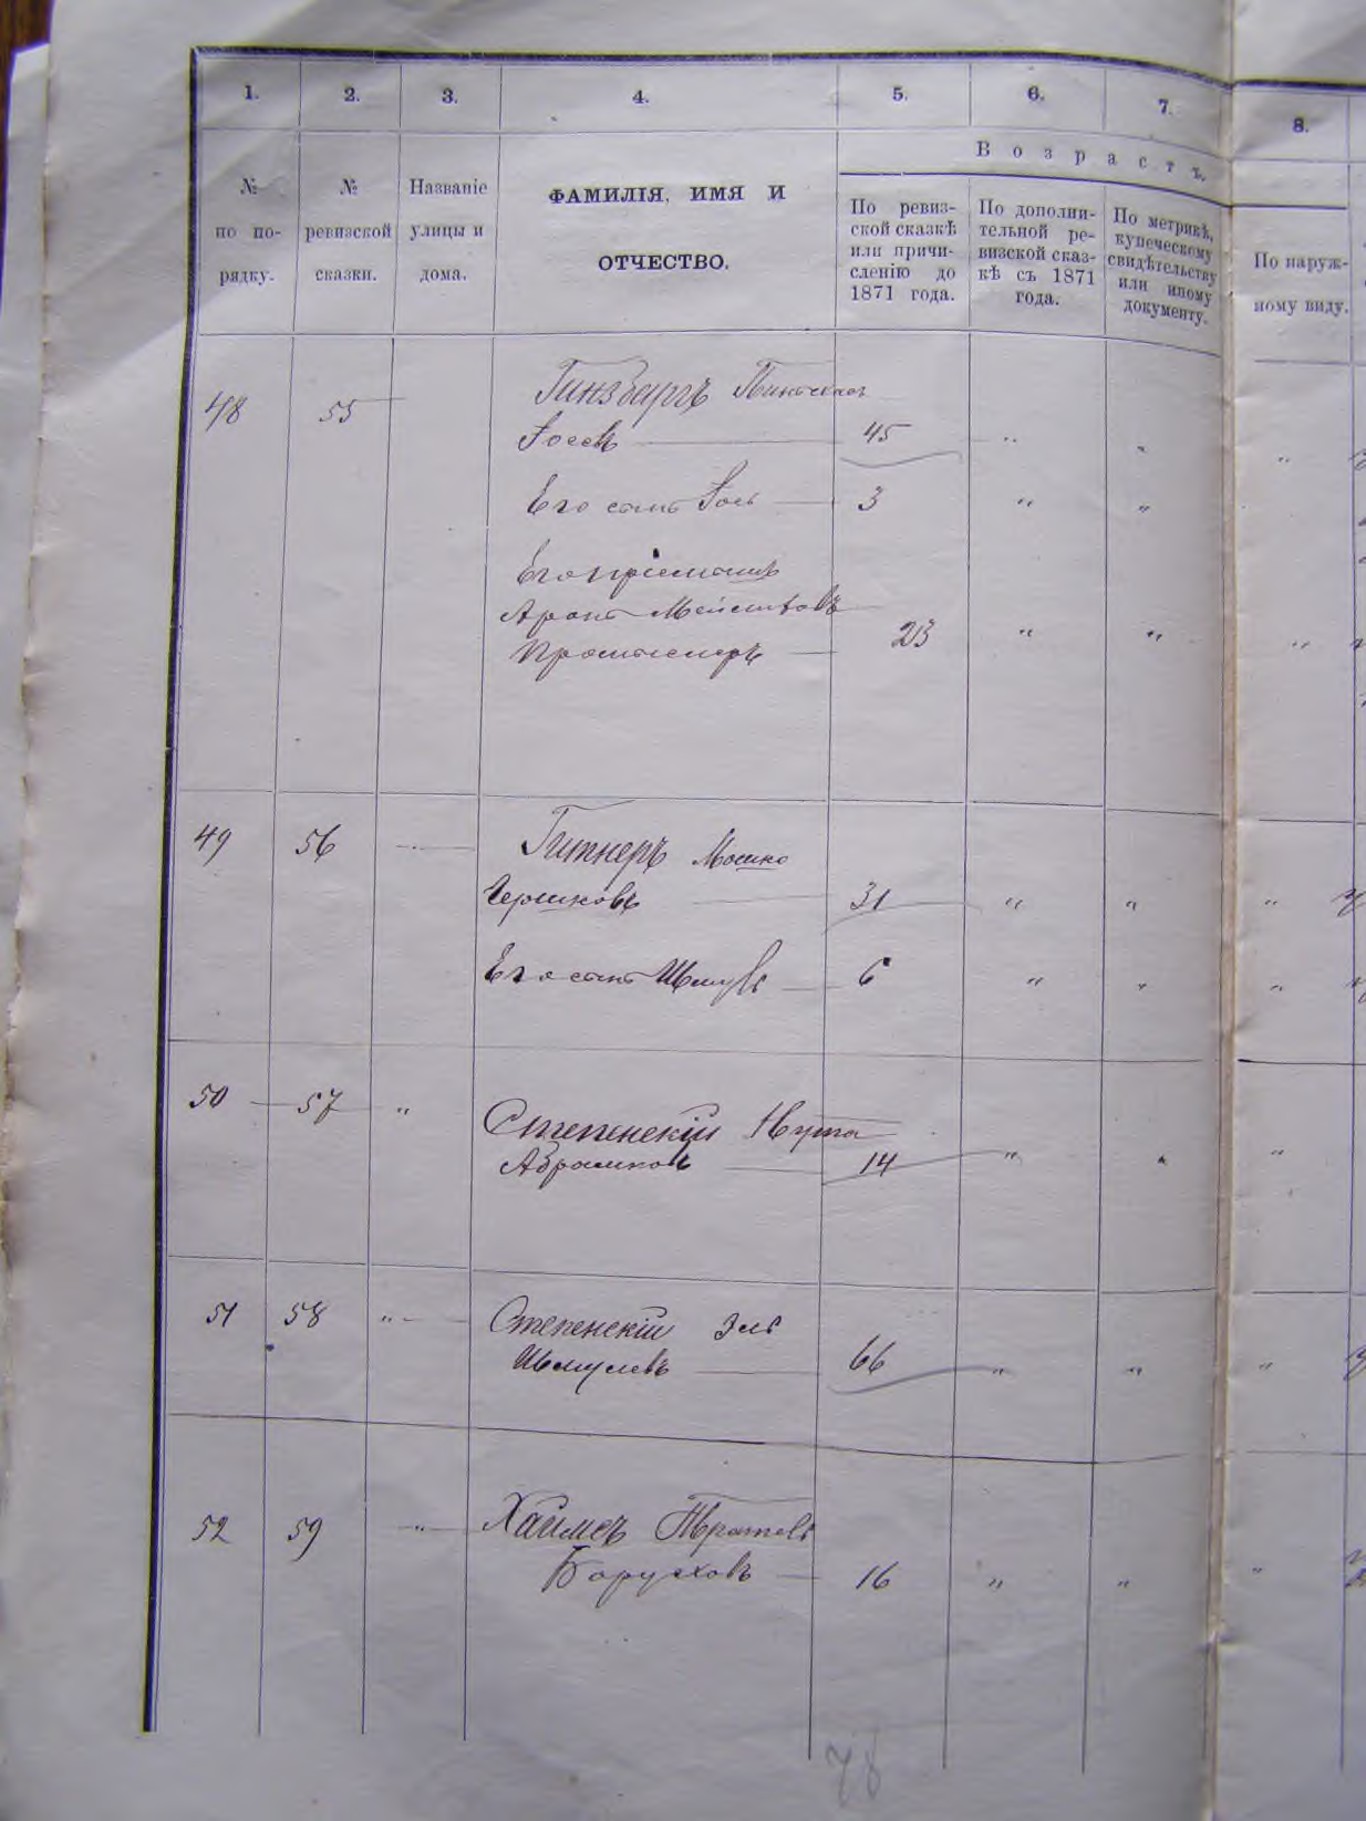 1. 2. 3. 4. 5. 6. 7. 8.
Возрастъ.
№ по по-рядку.
№ ревизской сказки.
Названіе улицы и дома.
ФАМИЛІЯ, ИМЯ И
ОТЧЕСТВО.
По ревиз-
ской сказкѣ
или причи-
сленію до
1871 года.
По дополни-
тельной ре-
визской сказ-
кѣ съ 1871
года.
По метрикѣ,
купеческому
свидѣтельству
или иному
документу.
По наруж-
ному виду.
48 55 Гинзбургъ
45 " " "
Его сынъ 3 " "
Его пріемышъ
Аронъ
23 " " "
49 56 Гитнеръ Мошко
Гершковъ 31 " " "
Его сынъ Шмуль 6 " " "
50 57 " Степенскій Нута
Абрамковъ 14 " " "
51 58 " Степенскій Эль
Шмулевъ 66 " " "
52 59 " Хаимсъ
Боруховъ 16 " " "
78